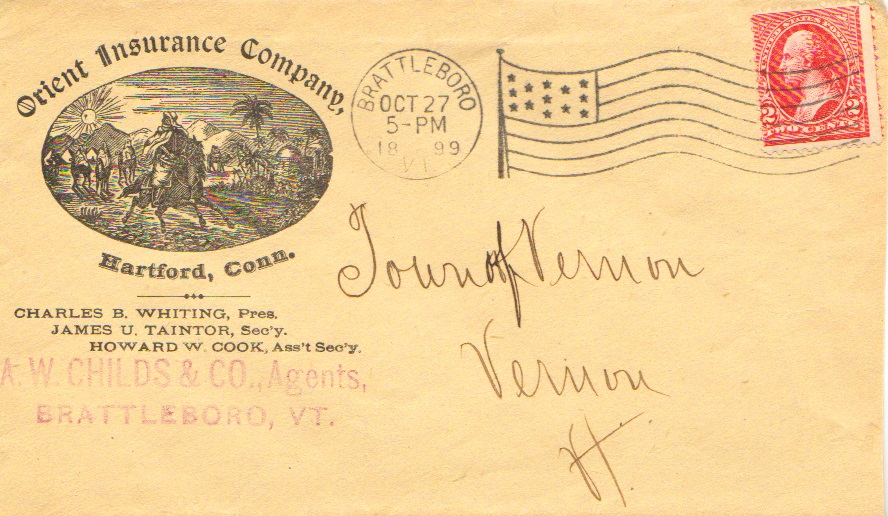 Orient Insurance Company,
Hartford, Conn.
CHARLES B. WHITING, Pres.
JAMES U. TAINTOR, Sec'y.
HOWARD W. COOK, Ass't Sec'y.
A. W. CHILDS & CO., Agents,
BRATTLEBORO, VT.
BRATTLEBORO
OCT 27
5-PM
18 99
VT.
UNITED STATES POSTAGE
2 2
TWO CENTS
Town of Vernon
Vernon
Vt.